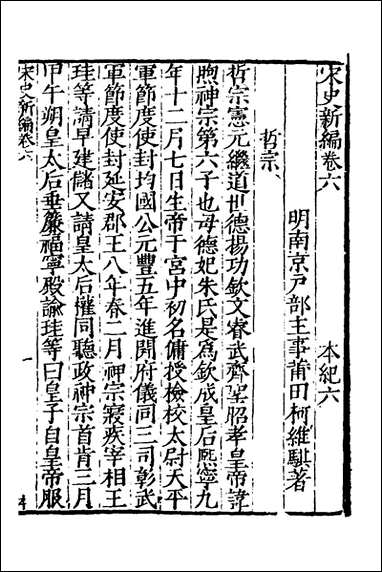 宋史新編卷六　　本紀六
明南京戶部主事莆田柯維騏著
哲宗
哲宗憲元繼道世德揚功欽文睿武齊聖昭孝皇帝諱
煦神宗第六子也母德妃朱氏是爲欽成皇后熈寧九
年十二月七日生帝于宮中初名傭授檢校太尉天平
軍節度使封均國公元豐五年進開府儀同三司彰武
軍節度使封延安郡王八年春二月神宗寢疾宰相王
珪等請早建儲又請皇太后權同聽政神宗首肯三月
甲午朔皇太后垂簾福寧殿諭珪等曰皇子自皇帝服
宋史新編卷六　　一